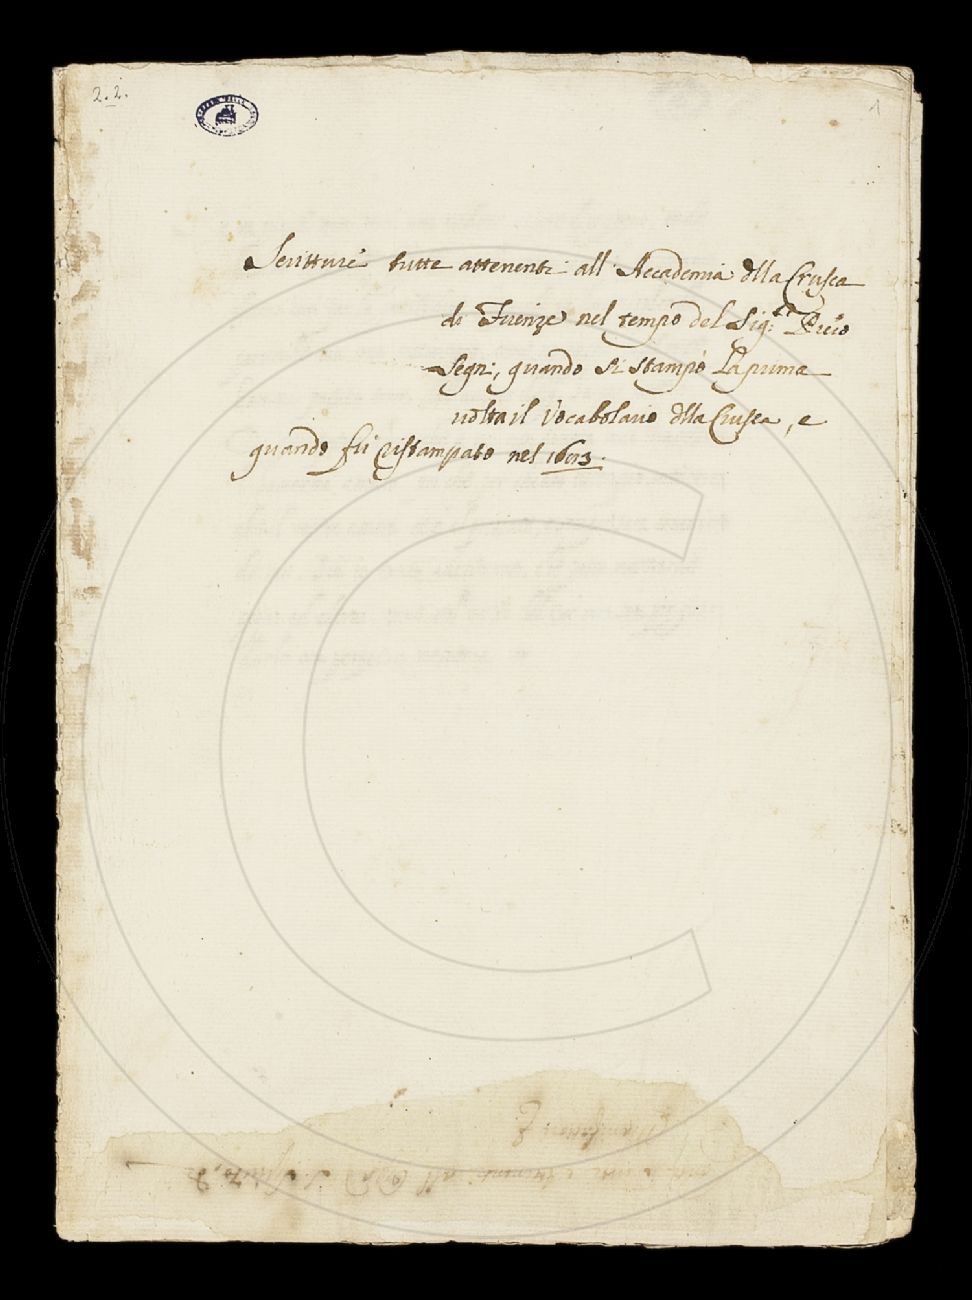 2.2.
1
Scritture tutte attenenti all Accademia dlla Crusca
di Firenze nel tempo del Sig:r Piero
Segni, quando si stampò La prima
volta il Vocabolario dlla Crusca, e
quando fù ristampato nel 1623.